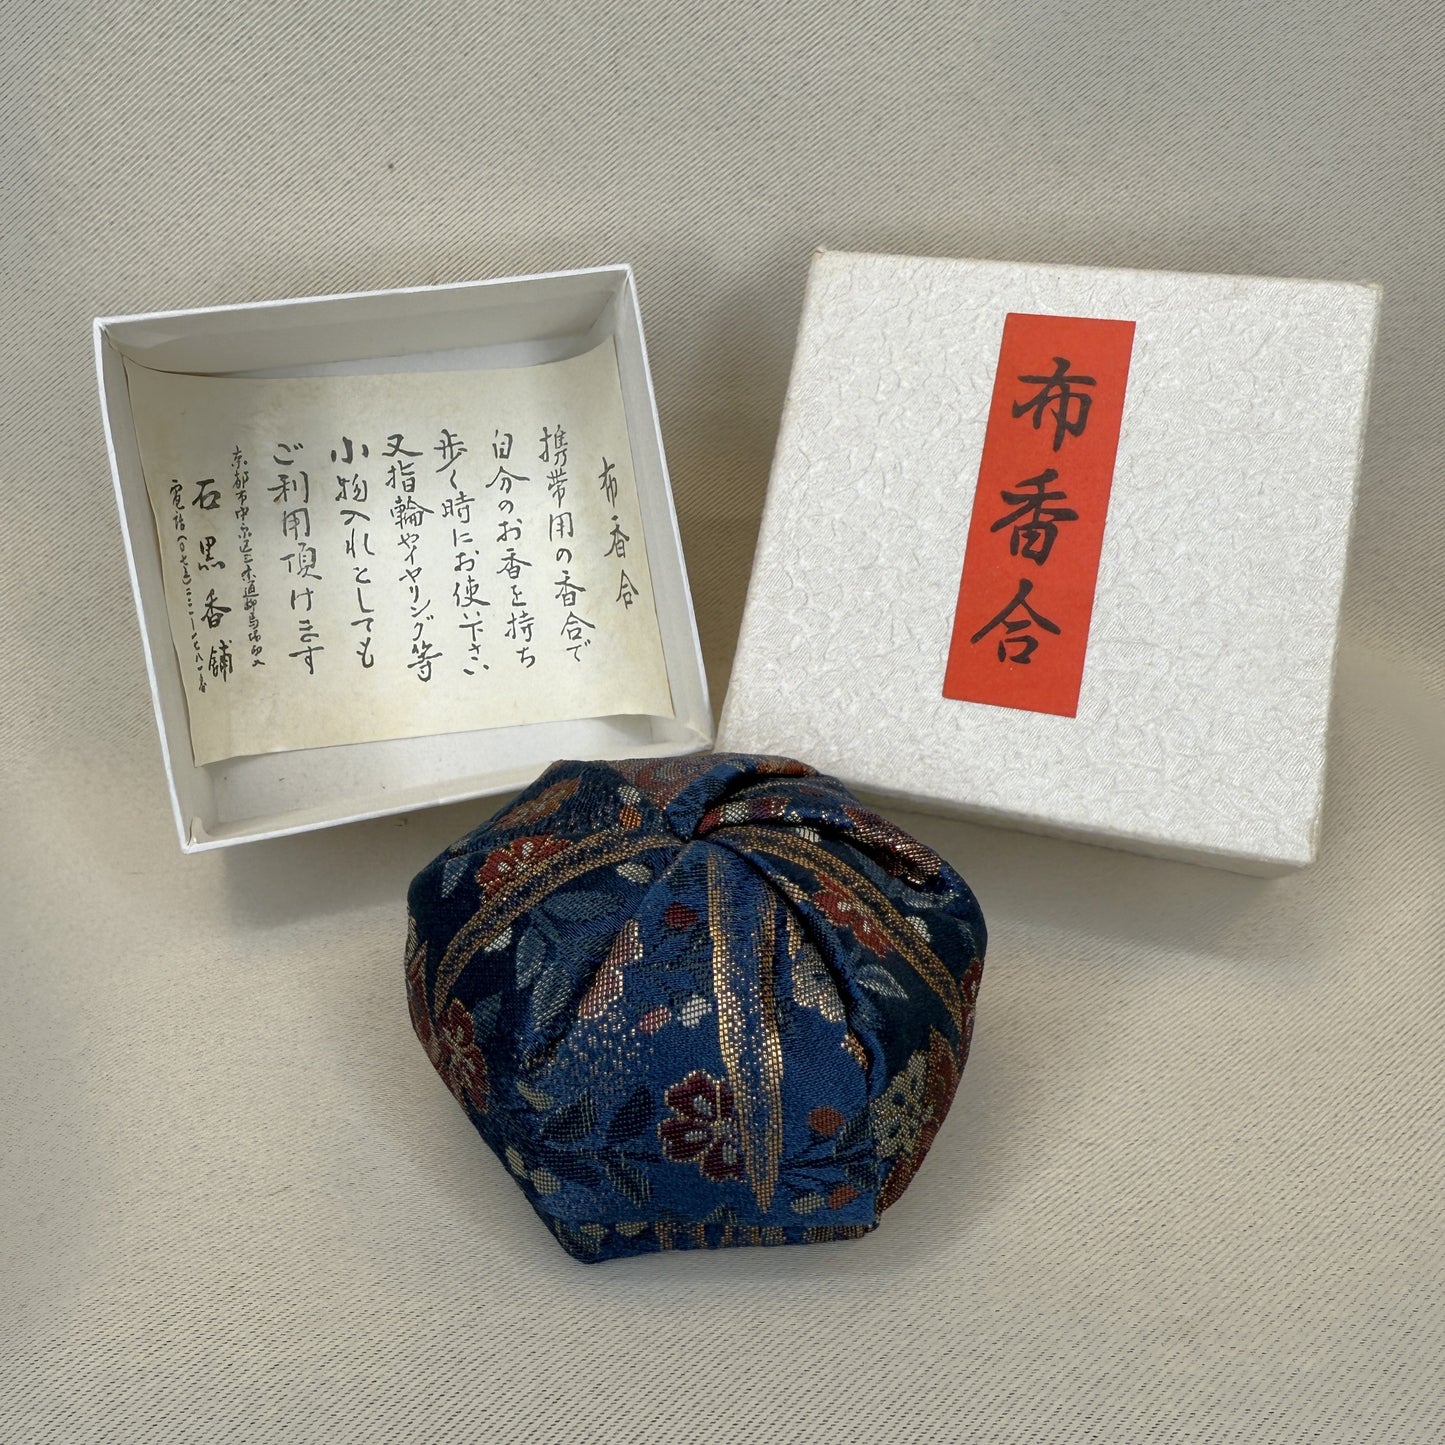 布香合
携帯用の香合で
自分のお香を持ち
歩く時にお使い下さい
又指輪やイヤリング等
小物入れとしても
ご利用頂けます
京都市中京区三条通柳馬場西入
石黒香舗
電話(〇七五)二二一―一七八一番
布香合